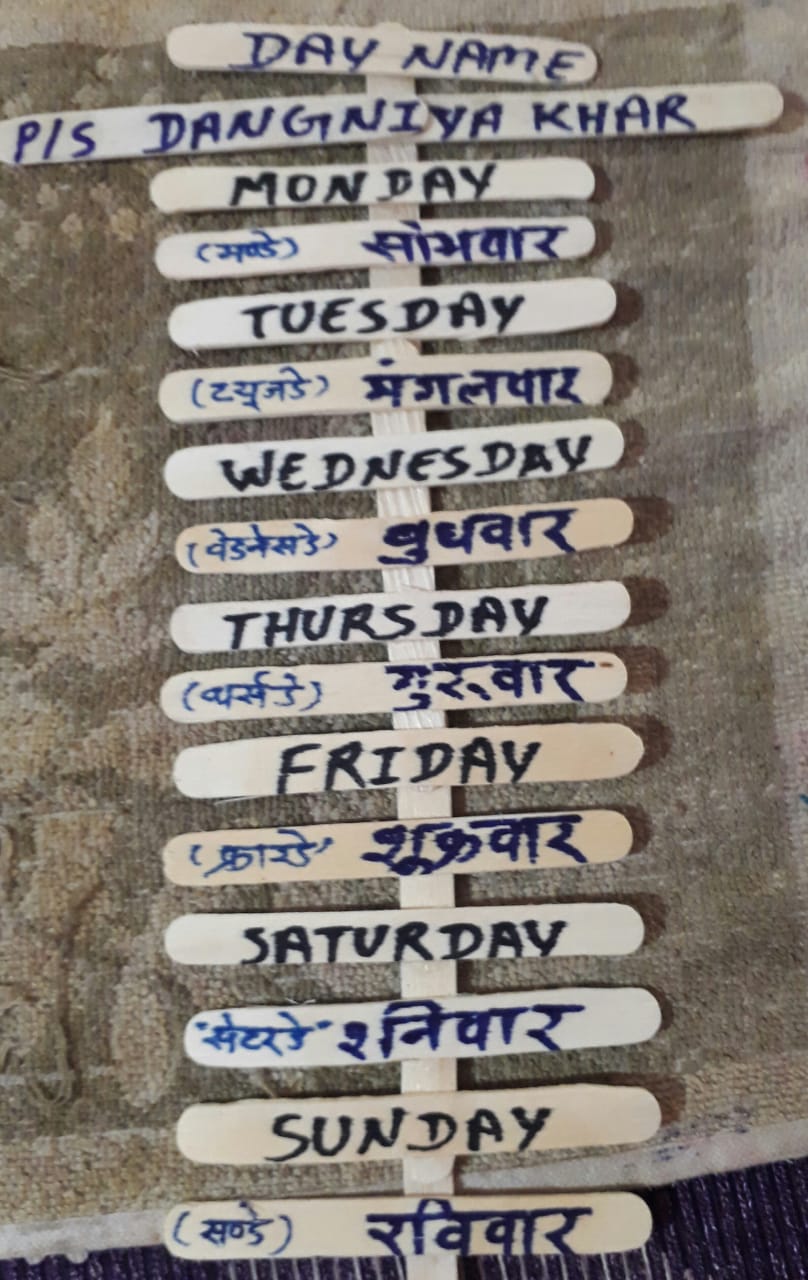 DAY NAME
P/S DANGNIYA KHAR
MONDAY
(मण्डे) सोमवार
TUESDAY
(टयूजडे) मंगलवार
WEDNESDAY
(वेडनेसडे) बुधवार
THURSDAY
(थर्सडे) गुरूवार
FRIDAY
(फ्राइडे) शुक्रवार
SATURDAY
"सेटरडे" शनिवार
SUNDAY
(सण्डे) रविवार